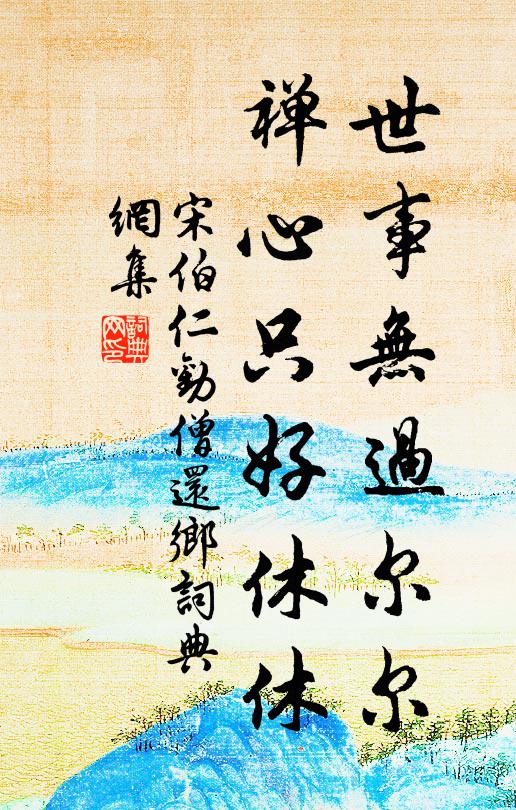 世事無過尔尔
禅心只好休休
宋伯仁勸僧還鄉詞典
網集
詞典
网印